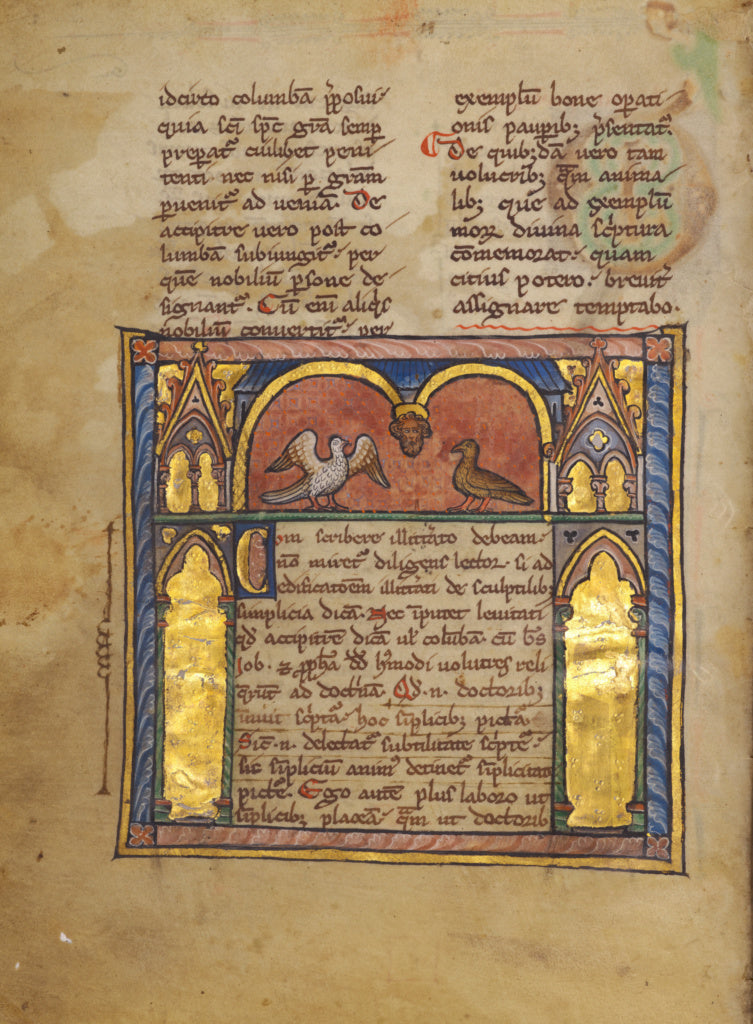 idcirco columbā p̄posui
quia sci sp̄c gr̄a semp
preparat̄ cuilibet peni
tenti. nec nisi p̱ gr̄am
p̱uenit̄ ad ueniā. De
accipitre uero post co
lumbā subiungit̄. per
quē nobiliū p̱sone de
signant̄. Cū eni aliq̇s
nobiliū conuertit̄. per
exemplū bone op̱ati
onis paup̱ibꝫ p̄sentat̄.
De quibꝫdā uero tam
uolucribꝫ q̄m anima
libꝫ que ad exemplū
morꝝ diuina sc̄ptura
cōmemorat. quam
citius potero. breuit̄
assignare temptabo.
Cvm scribere illitt̄ato debeam.
nō miret̄ diligens lector. si ad
edificatoēm illitt̄ati de sculptilibꝫ
simplicia dicā. Nec īputet leuitati
qd̄ accipitrē dicā ul̄ colūbā. cū b̄s
iob. ⁊ ꝓph̄a dd̄ h̄modi uolucres reli
q̄runt̄ ad doct̄nā. Qd̄. n. doctoribꝫ
inuit sc̄pta. hoc sīplicibꝫ pictā.
Sic. n. delectat̄ subtilitate sc̄pte.
sic sīpliciū anim᷒ detinet̄ sīplicitate
picte. Ego autē plus laboro ut
sīplicibꝫ placeā. q̄m ut doctorib